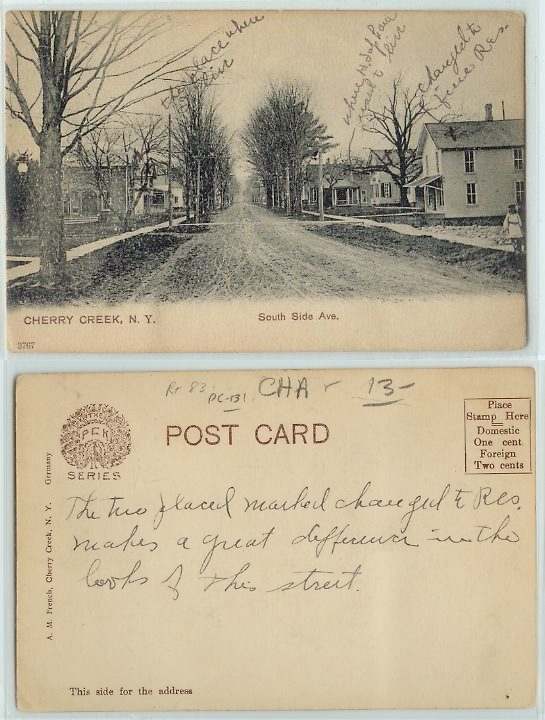 place where
live
where
live
changed to
fine Res.
CHERRY CREEK, N. Y.
South Side Ave.
3767
Rt 83
PC-131
CHA
13-
THE
PCK
SERIES
POST CARD
Place
Stamp Here
Domestic
One cent
Foreign
Two cents
A. M. French, Cherry Creek, N. Y. Germany
The two placed marked changed to Res.
makes a great difference in the
looks of this street.
This side for the address